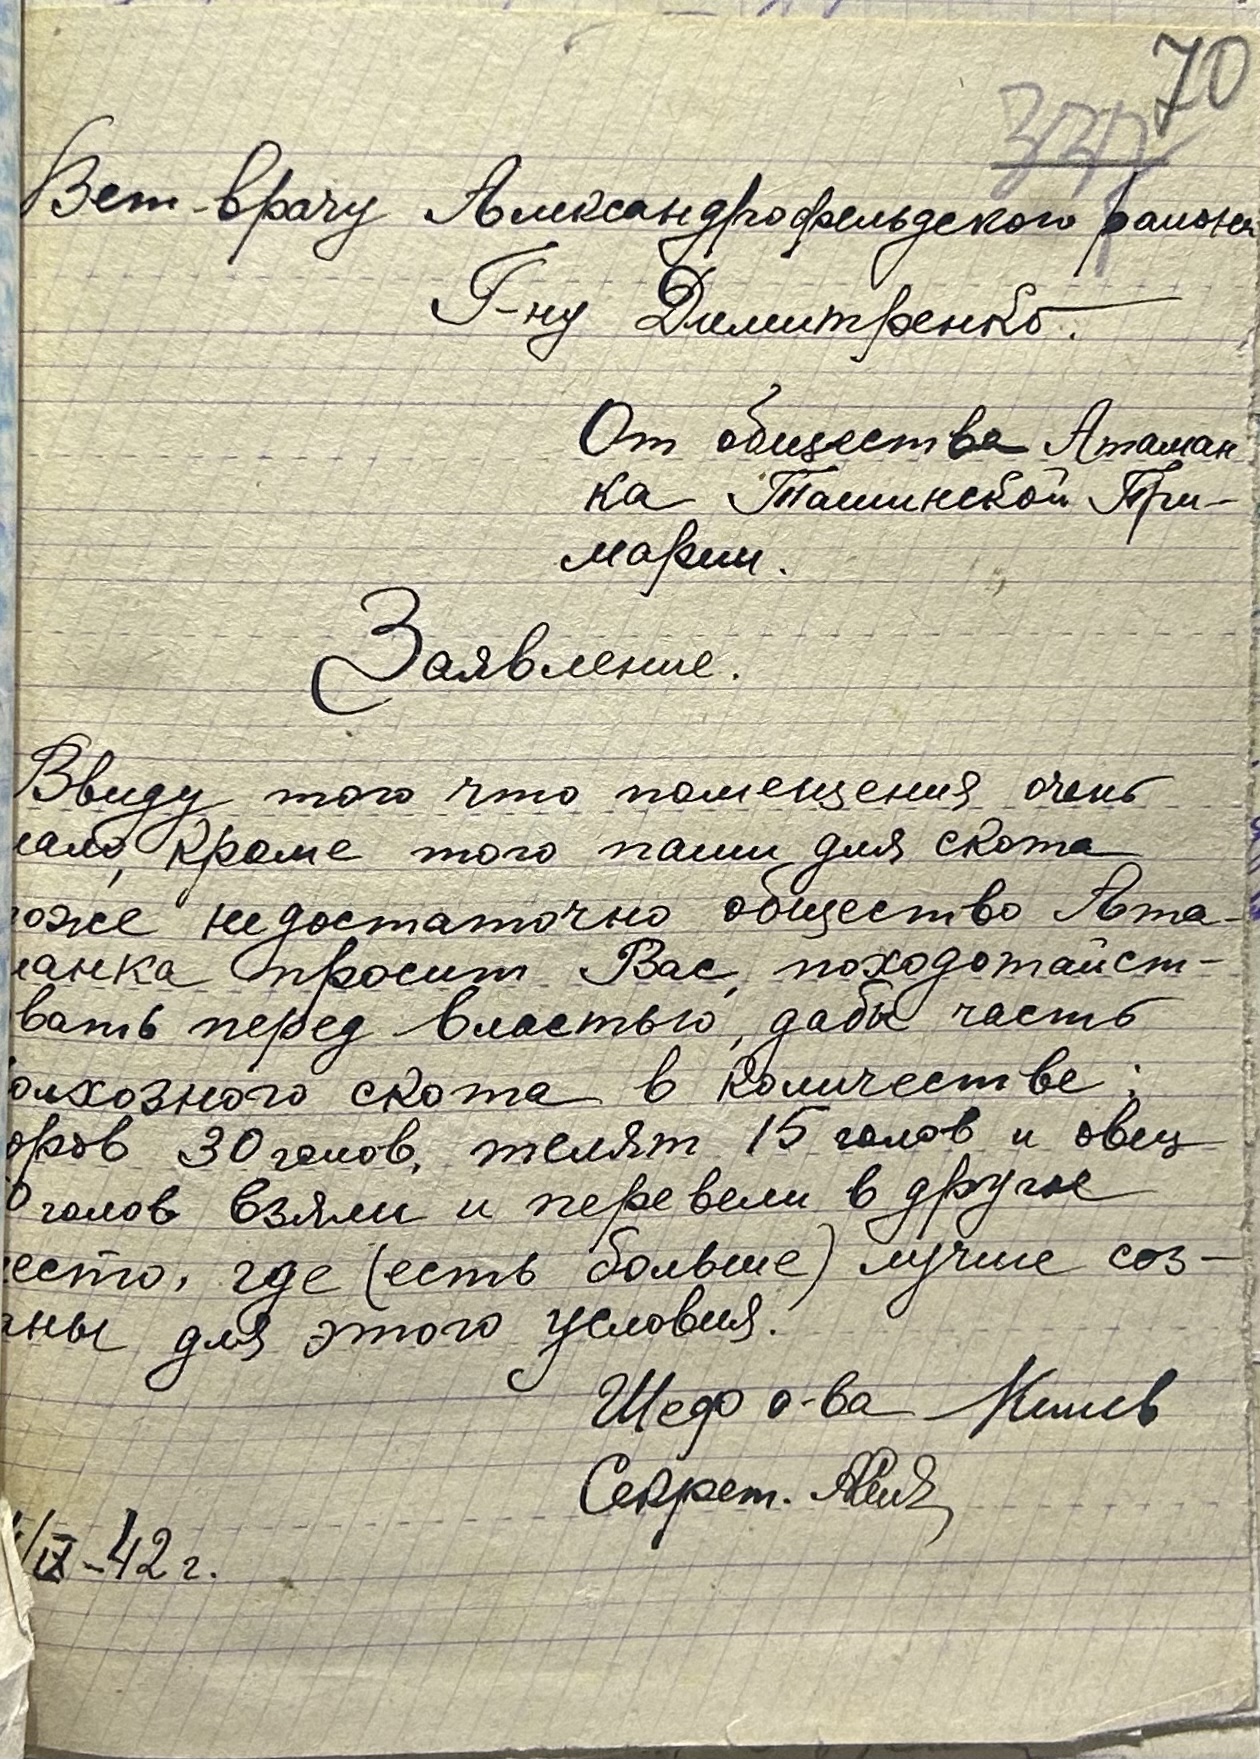 70
Вет-врачу Александрофельдского района
Г-ну Димитренко.
От общества Атаман
ка Ташинской При-
марии.
Заявление.
Ввиду того что помещения очень
мало, кроме того паши для скота
тоже недостаточно общество Ата-
манка просит Вас, походотайст-
вать перед властью, дабы часть
олхозного скота в количестве:
оров 30 голов, телят 15 голов и овец
0 голов взяли и перевели в другое
место, где (есть больше) лучше соз-
аны для этого условия.
Шеф о-ва
Секрет.
/IX-42 г.